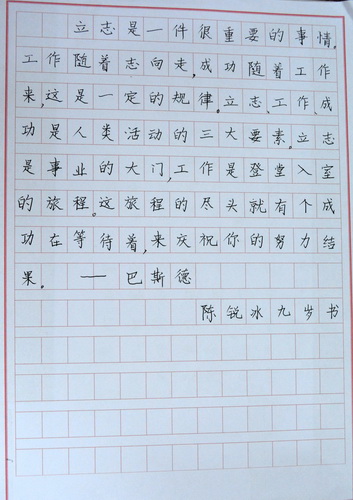 立志是一件很重要的事情,
工作随着志向走,成功随着工作
来,这是一定的规律。立志、工作、成
功是人类活动的三大要素。立志
是事业的大门,工作是登堂入室
的旅程。这旅程的尽头就有个成
功在等待着,来庆祝你的努力结
果。——巴斯德
陈锐冰九岁书